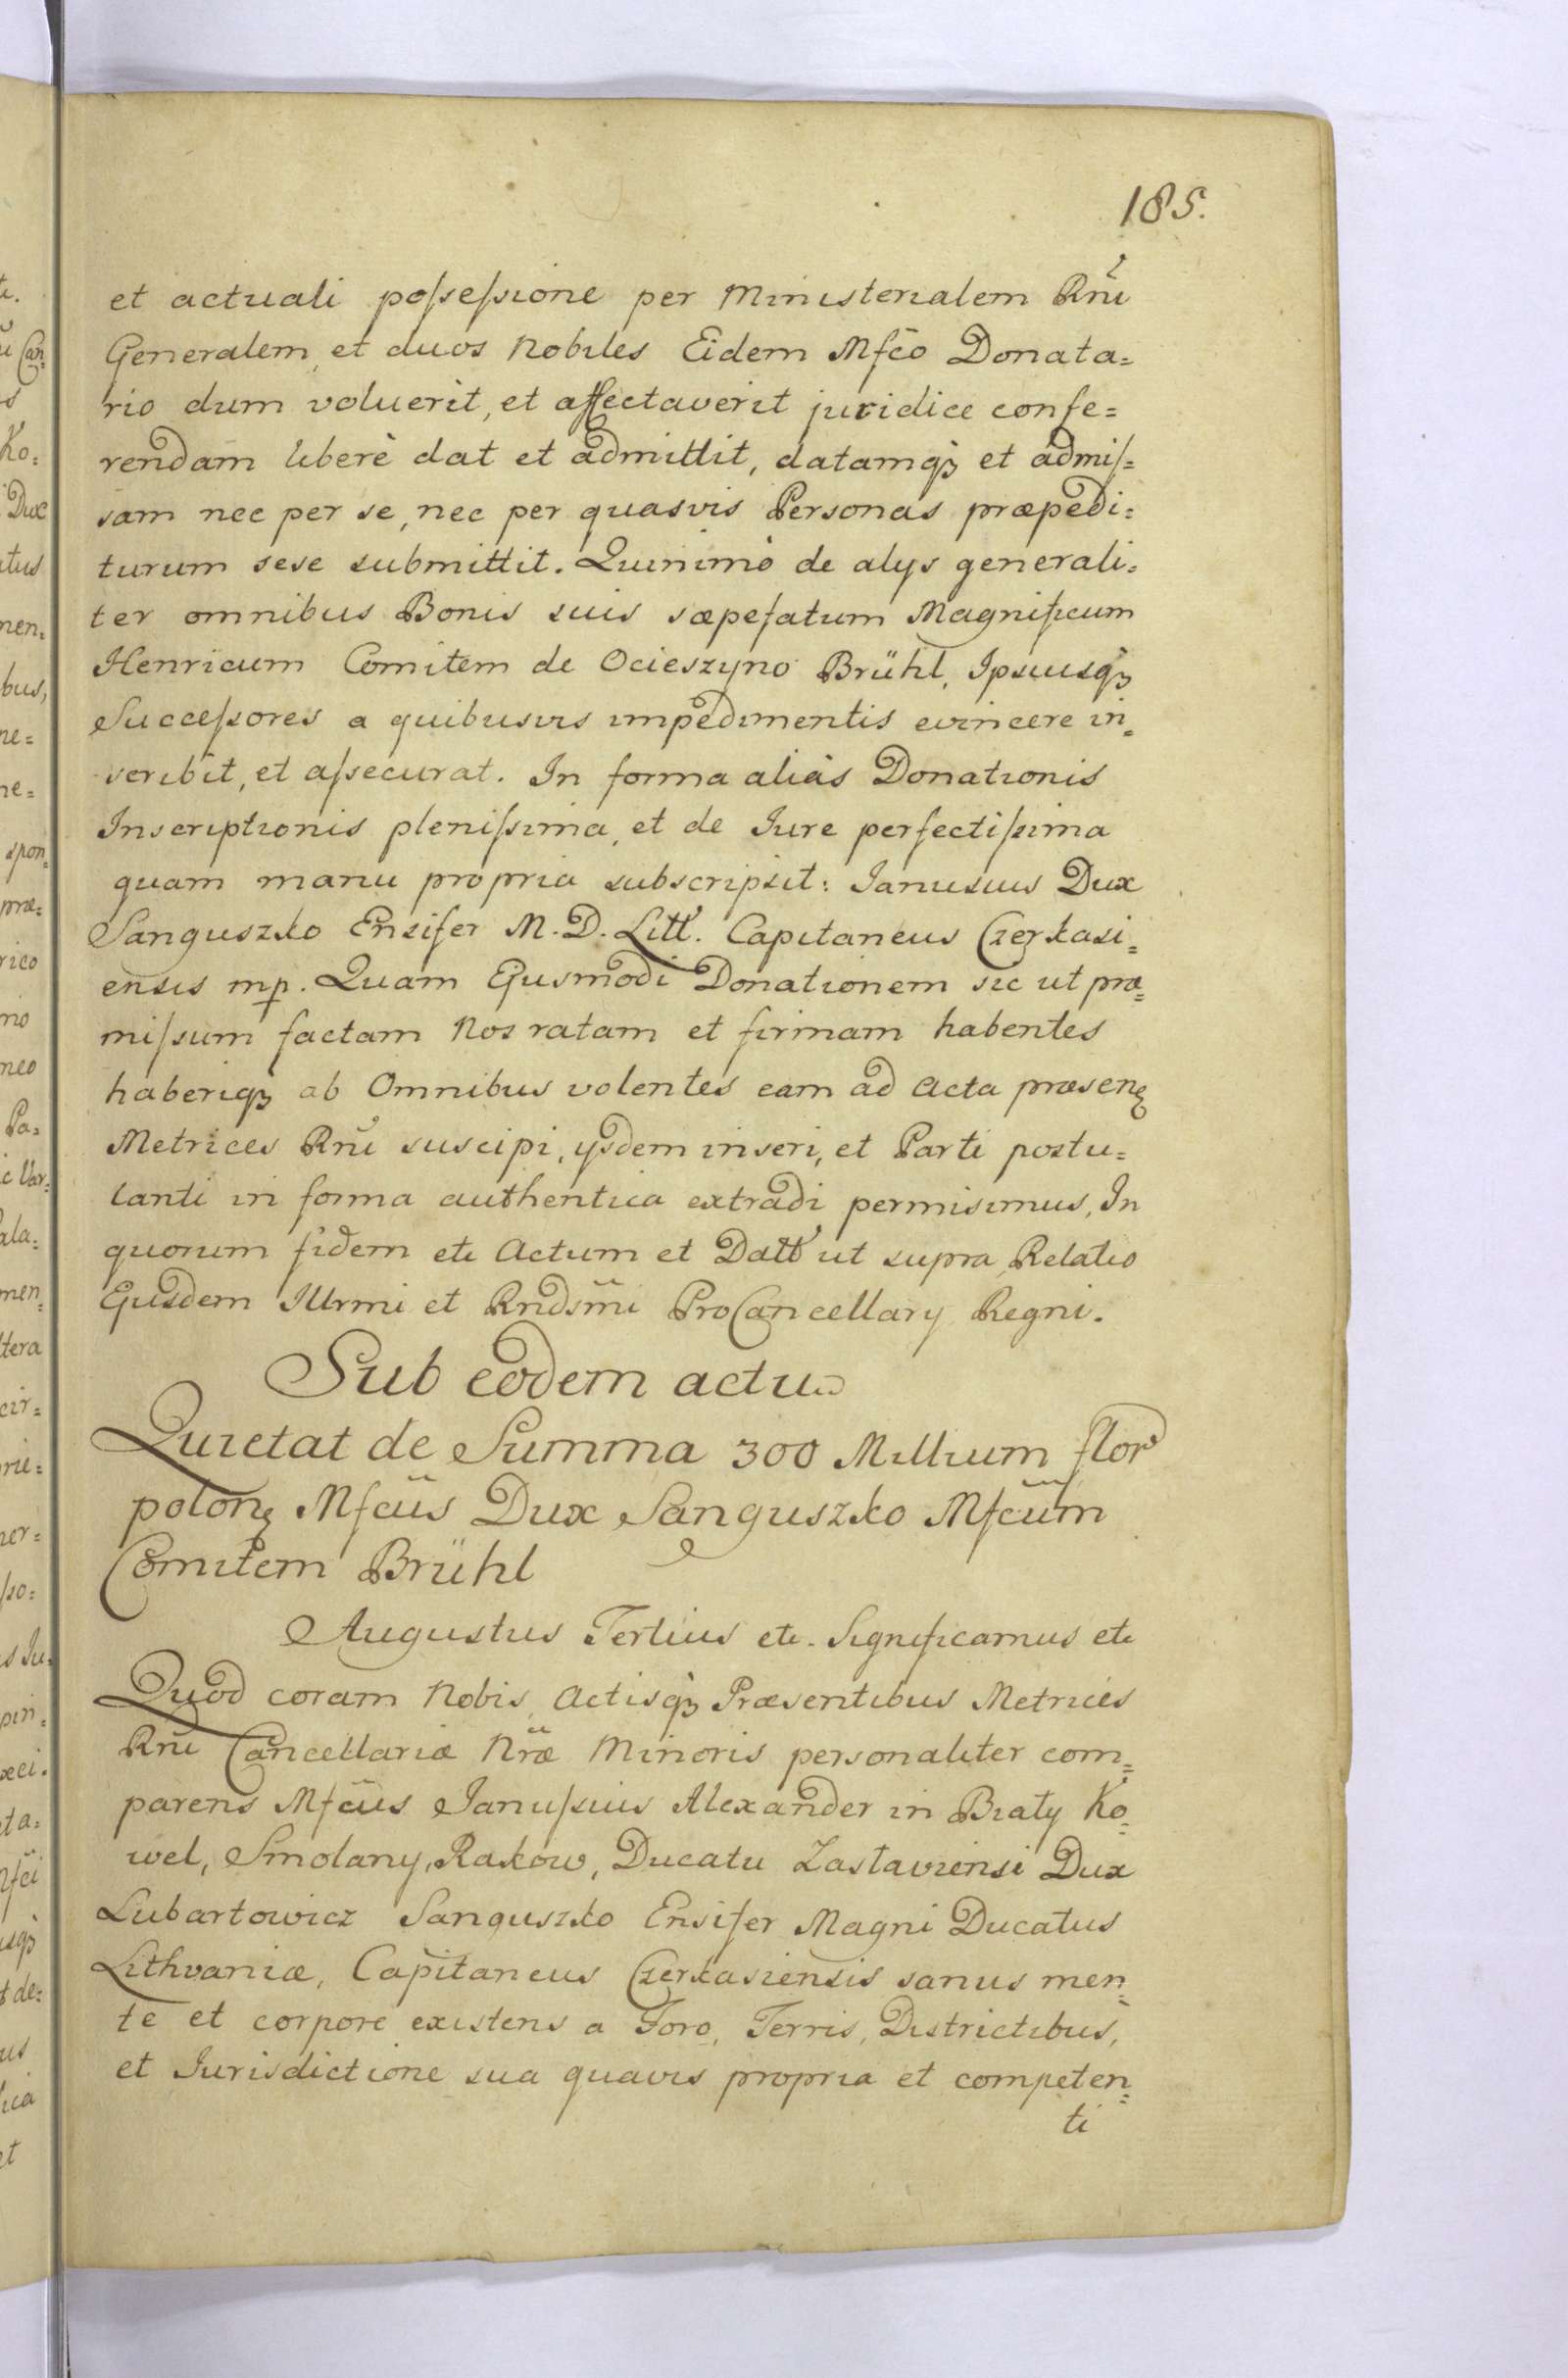 185.
et actuali possessione per Ministerialem Rñi
Generalem, et duos Nobiles Eidem Mfco Donata=
rio dum voluerit, et affectaverit juridice confe=
rendam liberè dat et admittit, datamqȝ et admis=
sam nec per se, nec per quasvis Personas præpedi=
turum sese submittit. Quinimò de alys generali=
ter omnibus Bonis suis sæpefatum Magnificum
Henricum Comitem de Ocieszyno Brühl, Ipsiusqȝ
Successores a quibusvis impedimentis evincere in=
scribit, et assecurat. In forma aliàs Donationis
Inscriptionis plenissima, et de Jure perfectissima
quam manu propria subscripsit: Janusius Dux
Sanguszko Ensifer M. D. Litt. Capitaneus Czerkasi=
ensis mp. Quam Ejusmodi Donationem sic ut præ=
missum factam Nos ratam et firmam habentes
haberiqȝ ab Omnibus volentes eam ad Acta præsen
Metrices Rñi suscipi, ysdem inseri, et Parti postu=
lanti in forma authentica extradi permisimus, In
quorum fidem etc Actum et Datt ut supra, Relatio
Ejusdem Illrmi et Rndsm̃i ProCancellary Regni.
Sub eodem actu
Quietat de Summa 300 Millium flor
polon Mfcũs Dux Sanguszko Mfcũm
Comitem Brühl
Augustus Tertius etc. Significamus etc
Quod coram Nobis, Actisqȝ Præsentibus Metrices
Rñi Cancellariæ Nr̃æ Minoris personaliter com=
parens Mfcũs Janussius Alexander in Biały Ko=
wel, Smolany, Rakow, Ducatu Zaslaviensi Dux
Lubartowicz Sanguszko Ensifer Magni Ducatus
Lithvaniæ, Capitaneus Czerkasiensis sanus men=
te et corpore existens a Foro, Terris, Districtibus,
et Jurisdictione sua quavis propria et competen=
ti